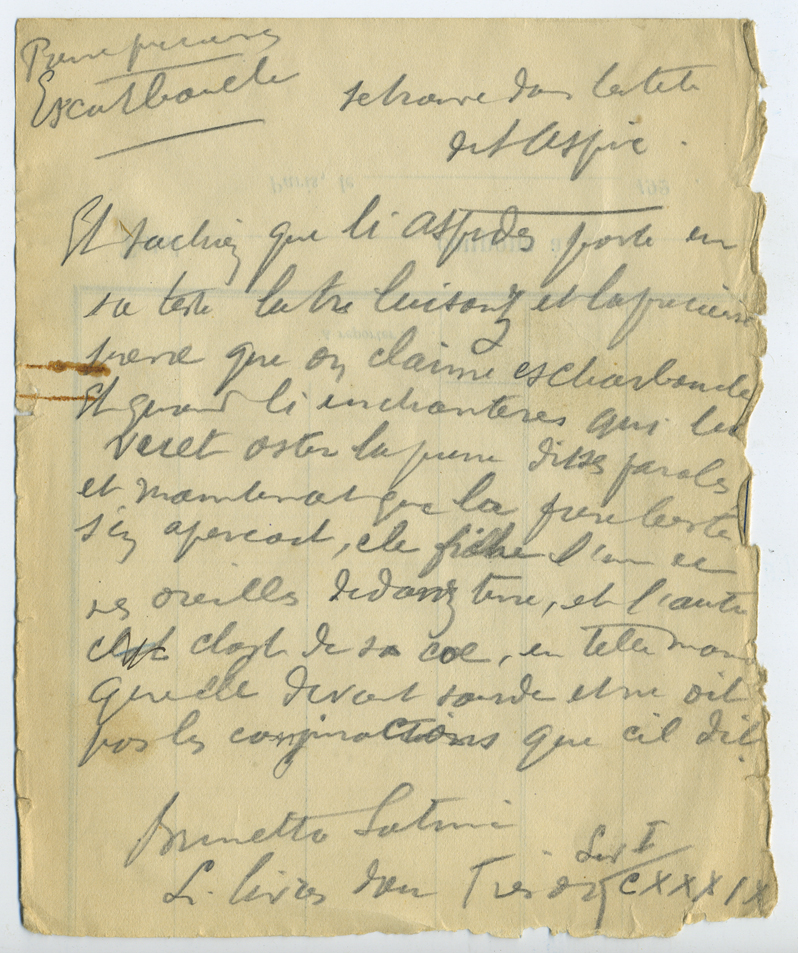 Pierre précieuse
Escarboucle
se trouve dans la tete
de l'aspic.
Et sachiez que li aspides porte en
sa teste la tre luisanz et la precieuse
piere que on claime escharboucle
Et quant li enchanteres qui le
veuet oster la piere dit ses paroles
et maintenant que la fiere beste
s'en apercoit, ele fiche l'une de
ses oreilles dedanz terre, et l'autre
clost de sa coe, en tele man
que elle devient sourde et ne oit
pas les conjurations que cil dit.
Brunetto Latini
Li livres dou Tresor Liv I
CXXXIX